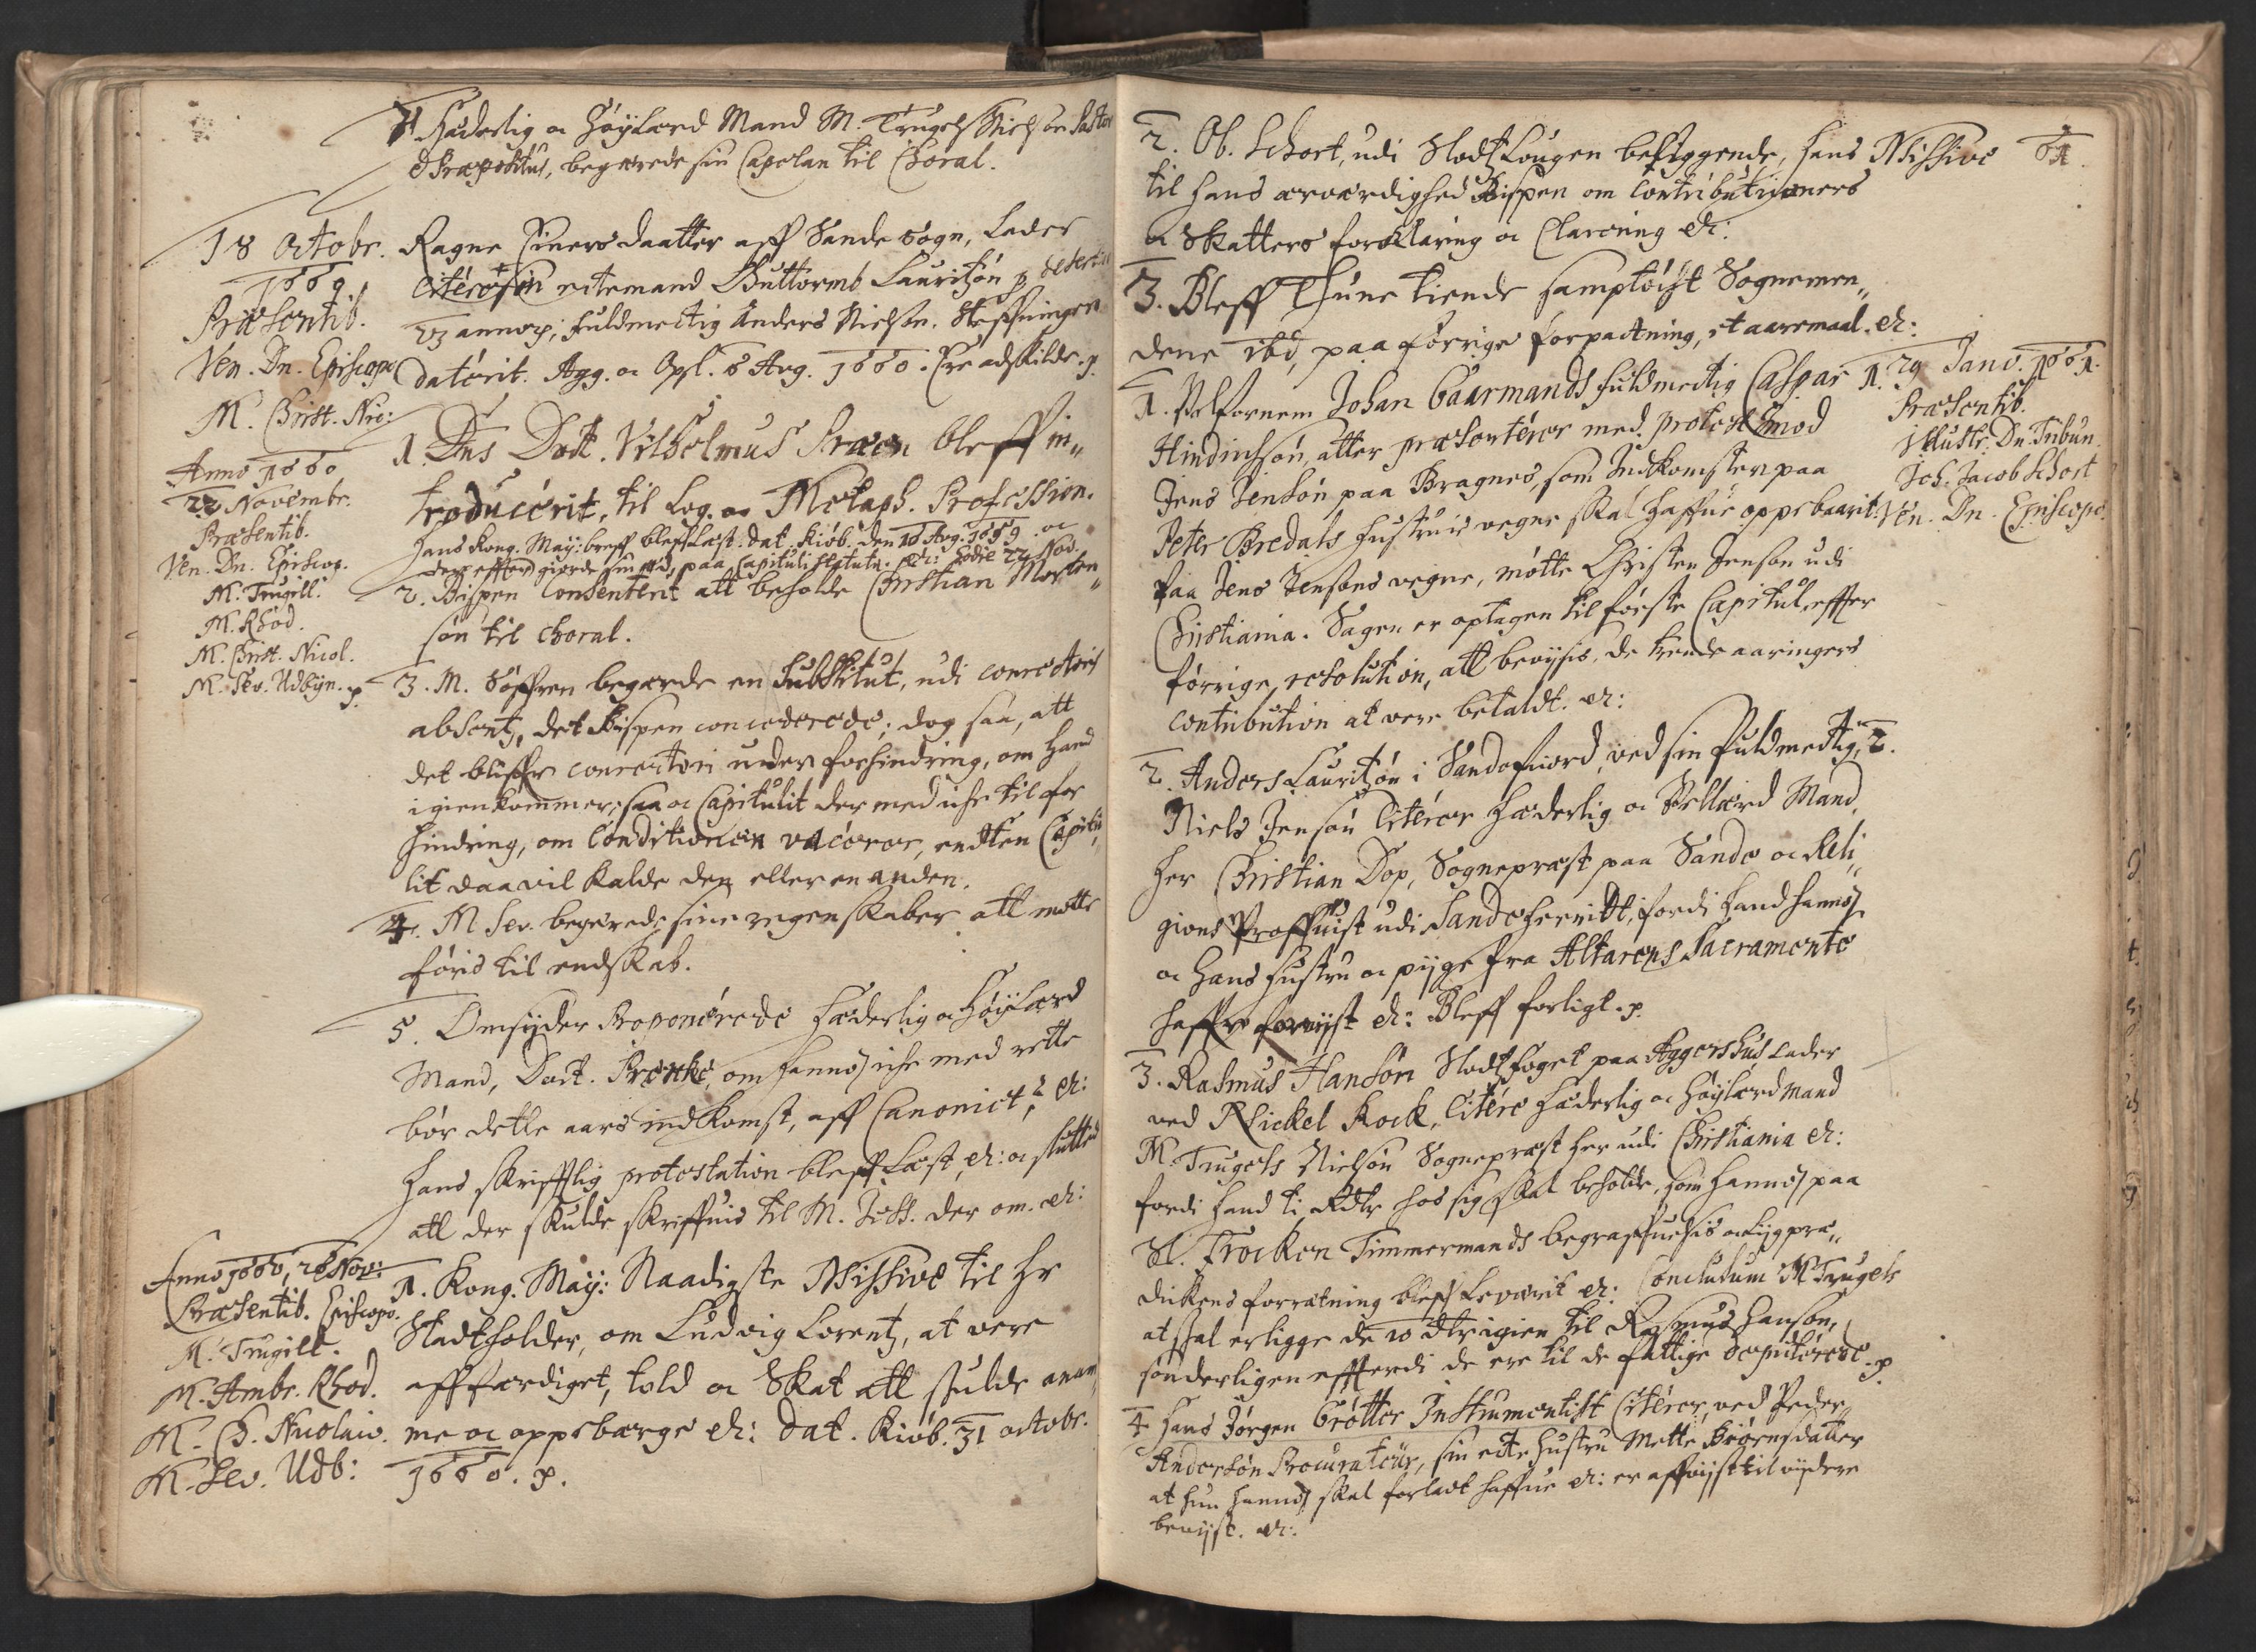 4. Hæderlig oc Høylærd Mand M. Trugels Nielsøn Pastor
& Præpositus, begærede sin Capelan til Choral.
18 Octobr.
1660
Præsentib.
Ven. Dn. Episcopo
M. Christ. Nic:
Ragne Einersdaatter aff Sande Sogn, lader
citere sin ectemand Guttormb Lauritzøn
annor; fuldmectig Anders Nielsøn. Steffningen
daterit. Agg. oc Opl. 6 Aug. 1660. Ere adskilde. p.
Anno 1660
22 Novembr.
Præsentib.
Ven. Dn. Episcop.
M. Trugill.
M. Rhod.
M. Christ. Nicol.
M. Sev. Udbyn. p.
1. Dns Doct. Vilhelmus bleff in„
troducerit, til Log. oc Metaph. Profession.
Hans Kong. May: breff bleff læst. dat. Kiøb. den 16 Aug. 1659 oc
der effter giorde sin æd, paa Capituli statuta. &c: hodie 22 Nov.
2. Bispen Consenterit att beholde Christian Morten„
søn til choral.
3. M. Søffren begærde en Substitut, udi conrectoris
absentz, det Bispen concederede; dog saa, att
det bliffr conrectori uden forhindring, om hand
igienkommer, saa oc Capitulit der med iche til for
hindring, om Conditionen vacerer, endten Capitu„
lit daa vil kalde den eller en anden.
4. M Sev. begærede sine regenskaber att motte
føris til endskab.
5. Omsyder Proponerede hæderlig oc Høylærd
Mand, Doct. om hannos iche med rette
bør dette aars indkomst, aff Canonict,? &c:
hans skrifftlig protestation bleff læst, &c: oc sluttet
att der skulde skriffuis til M. der om. &c:
Anno 1660, 28 Nov:
Præsentib. Episcopo.
M. Trugill.
M. Ambr. Rhod.
M. Ch. Nicolai.
M. Sev. Udb:
1. Kong. May: Naadigste Missive til Hr
Stadtholder, om Ludvig Lorentz, at vere
affærdiget, told oc Skat att skulde anam„
me oc oppebærge &c: Dat. Kiøb. 31 octobr.
1660. p.
61.
2. Ob. Schort, udi Slodtz Lougen befliggende, hans Missive
til hans ærværdighed Bispen om Contributioners
oc Skatters forklaring oc Clarering &c:
3. Bleff Thune tiende samptøcht Sognemen„
dene ibd, paa førrige forpactning, 1 aaremaal. &c:
29 Janv. 1661.
Præsentib.
Illustr. Dn. Tribun.
Joh. Jacob Schort
Ven. Dn. Episcopo
1. Velfornem Johan Gaarmands fuldmectig Caspar
Hindrichsøn, atter præsenterer med protest imod
Jens Jensøn paa Bragnes, som Indkomsten paa
Peter Bredals hustrues vegne skal haffue oppebaarit.
Paa Jens Jensøns vegne, møtte Christen Jensøn udi
Christiania. Sagen er optagen til første Capitul, effter
førrige, resolution, att bevisis, de trende aaringers
Contribution at vere betaldt. &c:
2. Anders Lauritzøn i Sandefiord, ved sin fuldmectig,
Niels Jensøn Citerer Hæderlig oc Vellærd Mand,
Her Christian Dop, Sognepræst paa Sande oc Reli„
gions Proffuist udi Sandeherritt, fordi hand hannos
oc hans hustru oc pyge fra Altarens Sacramente
haffr forviist &c: Bleff forligt. p.
3. Rasmus Hansøn Slodtzfoget paa Aggershus lader
ved Michel Kock, Citere Hæderlig oc Høylærd Mand
M. Trugels Nielsøn Sognepræst her udi Christiania &c:
fordi hand ti Rdlr hos sig skal beholde, som hannos paa
Sl. Trocken Timmermands begraffuelsis oc liigpræ„
dickens forrætning bleff leverit &c: Conclusum M Trugels
at skal erligge de 10 dlr igien til Rasmus Hansøn,
sønderligen effterdi de ere til de fattige deputerede. p.
4 Hans Jørgen Grøtter Instrumentist Citerer, ved Peder
Andersøn Procurateur, sin ecte hustru Mette Biørnsdatter
at hun hannos skal forladt haffue &c: er affviist til videre
beviist. &c: